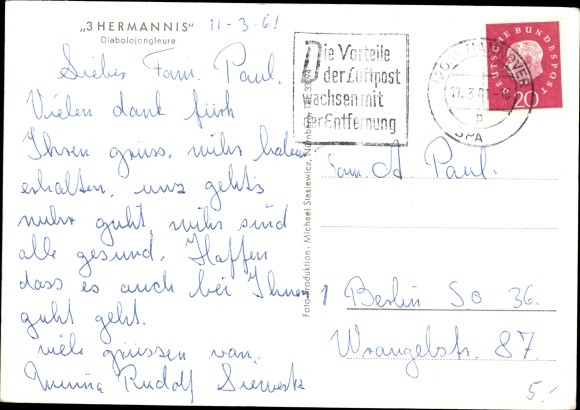 „3 HERMANNIS“
Diabolojongleure
11-3-61
Liebes Fam. Paul.
Vielen dank fürh
Ihren grüss, mihr haben
erhalten, unz gehtz
nuhr guht, mihr sind
alle gesund. Haffen
dass es auch bei Ihnen
guht geht.
viele grüssen van.
Minna Rudolf Siewertz
Foto-Produktion: Michael Stasiewicz, Nürnberg
Die Vorteile
der Luftpost
wachsen mit
der Entfernung
HANNOVER
11.3.61
P
DEUTSCHE BUNDESPOST
20
Fam. A Paul.
1 Berlin So. 36.
Wrangelstr. 87.
5.-